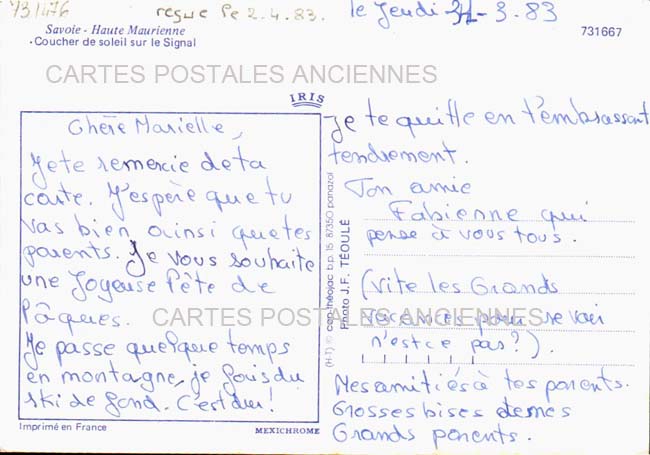 731476
reçue le 2.4.83.
le Jeudi 31-3.83
Savoie - Haute Maurienne
Coucher de soleil sur le Signal
731667
CARTES POSTALES ANCIENNES
IRIS
Chère Marielle,
Je te remercie de ta
carte. J'espère que tu
vas bien ainsi que tes
parents. Je vous souhaite
une Joyeuse Fête de
Pâques.
Je passe quelque temps
en montagne, je fais du
ski de fond. C'est dur!
Imprimé en France
MEXICHROME
(H-T) © cap-théojac b.p. 15 87350 panazol
Photo J.F. TÉOULÉ
Je te quitte en t'embrassant
tendrement.
Ton amie
Fabienne qui
pense à vous tous.
(Vite les Grands
vacances pour se voir
n'est ce pas?).
CARTES POSTALES ANCIENNES
Mes amitiés à tes parents.
Grosses bises de mes
Grands parents.